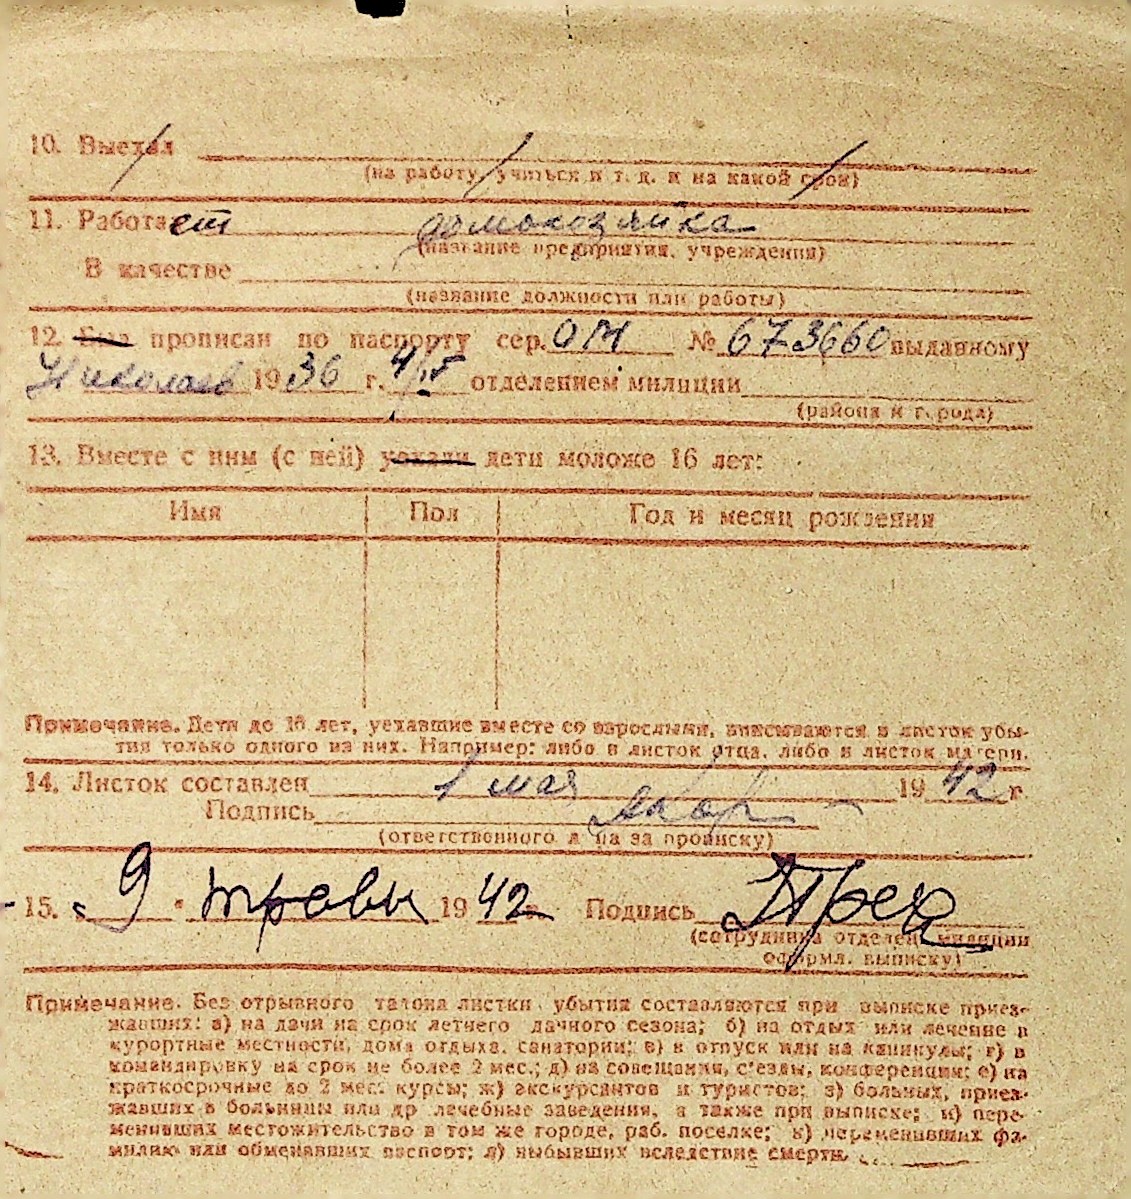 10. Выехал
(на работу, учиться и т. д. и на какой срок)
11. Работает домохозяйка
(название предприятия, учреждения)
В качестве
(название должности или работы)
12. Был прописан по паспорту сер. ОМ № 673660 выданному
Николаев 1936 г. 4/ отделением милиции
(района и города)
13. Вместе с ним (с ней) уехали дети моложе 16 лет:
Имя Пол Год и месяц рождения
Примечание. Дети до 16 лет, уехавшие вместе со взрослыми, вписываются в листок убы-
тия только одного из них. Например: либо в листок отца, либо в листок матери.
14. Листок составлен 1 мая 1942 г.
Подпись
(ответственного л ца за прописку)
15. „ 9 " травн 1942 Подпись
(сотрудника отделен. милиции
оформл. выписку)
Примечание. Без отрывного талона листки убытия составляются при выписке приез-
жавших: а) на дачи на срок летнего дачного сезона; б) на отдых или лечение в
курортные местности, дома отдыха, санатории; в) в отпуск или на каникулы; г) в
командировку на срок не более 2 мес.; д) на совещания, с'езды, конференции; е) на
краткосрочные до 2 мес. курсы; ж) экскурсантов и туристов; з) больных, приез-
жавших в больницы или др лечебные заведения, а также при выписке; и) пере-
менивших местожительство в том же городе, раб. поселке; к) переменивших фа-
милию или обменявших паспорт; л) выбывших вследствие смерти.